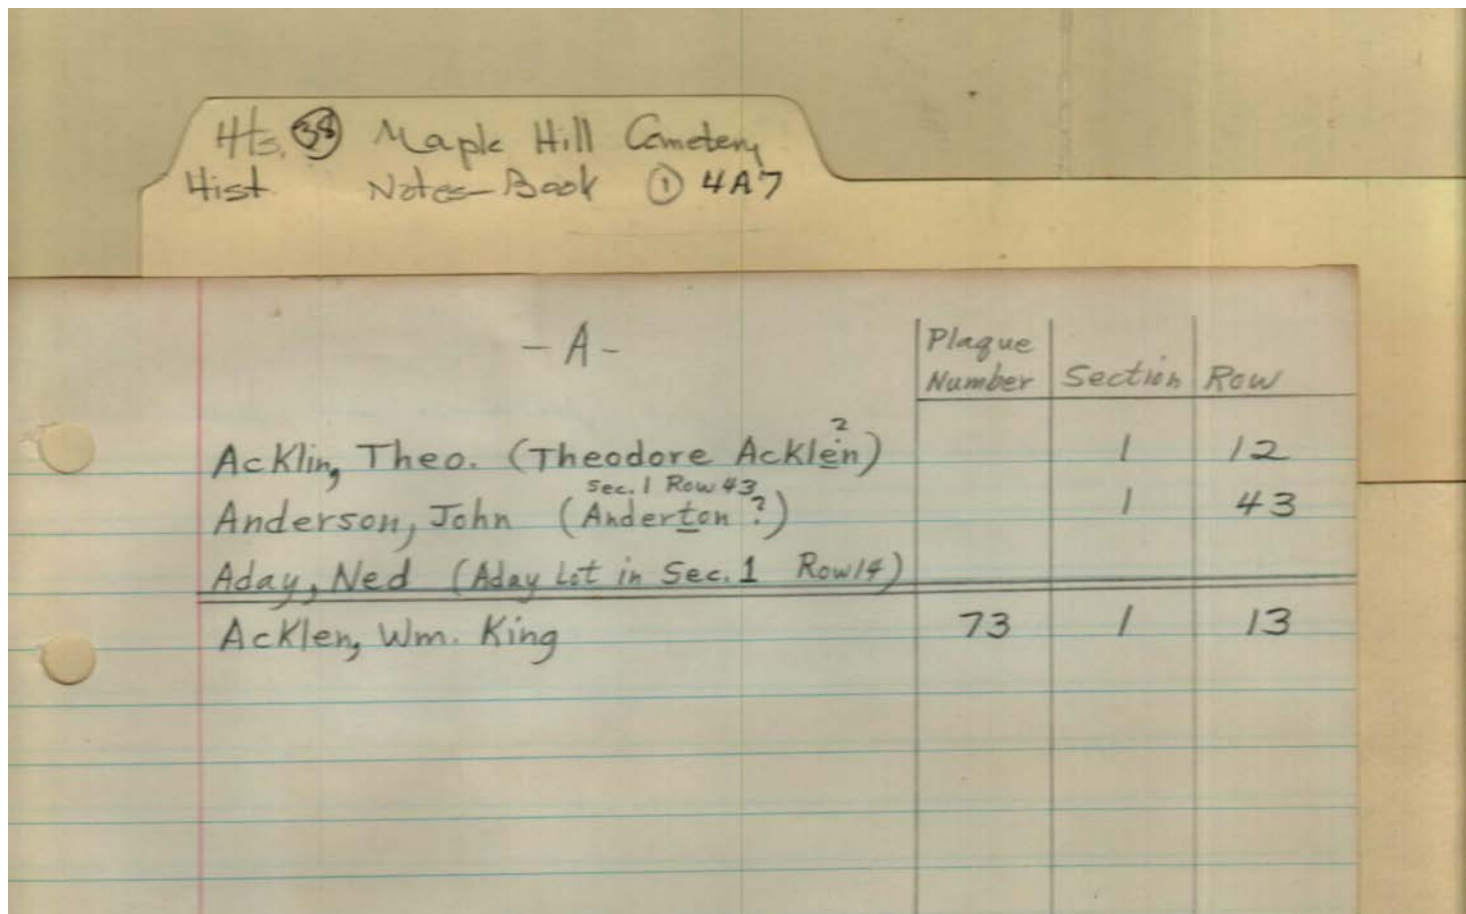 Hts. 38 Maple Hill Cemetery
Hist. Notes-Book 1 4A7
-A-
Plaque Number Section Row
Acklin, Theo. (Theodore Acklen?) 1 12
Sec. 1 Row 43
Anderson, John (Anderton?) 1 43
Aday, Ned (Aday Lot in Sec. 1 Row 14)
Acklen, Wm. King 73 1 13